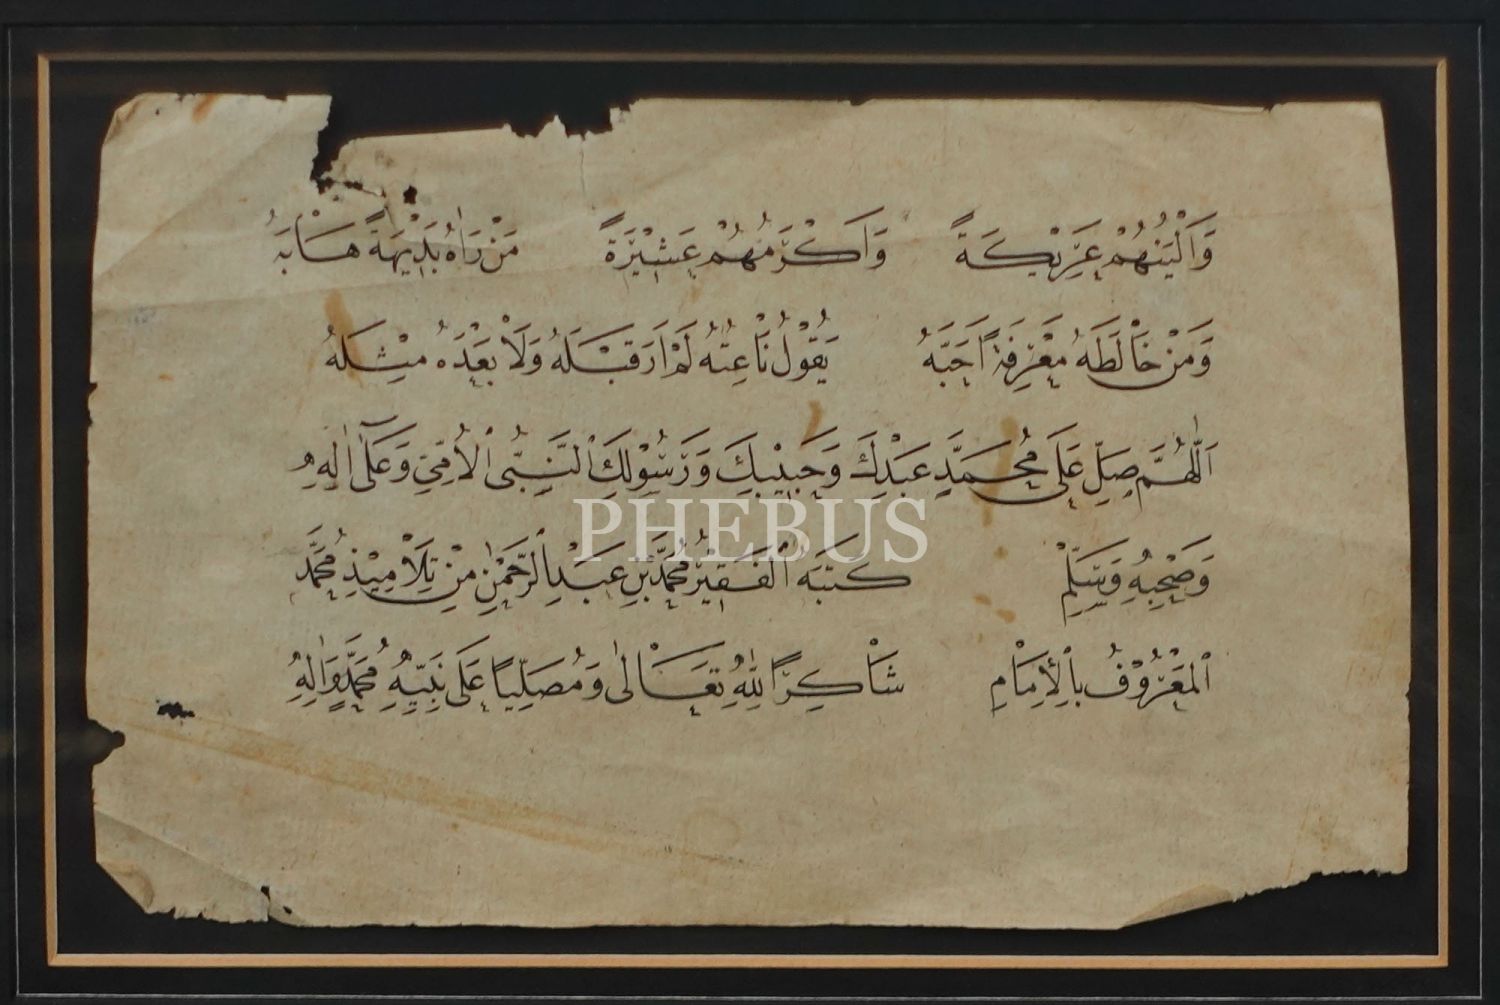 وَاَلْيَنُهُمْ عَرِيْكَةً وَاَكْرَمُهُمْ عَشِيْرَةً مَنْ رَاٰهُ بَدِيْهَةً هَابَهُ
وَمَنْ خَالَطَهُ مَعْرِفَةً اَحَبَّهُ يَقُوْلُ نَاعِتُهُ لَمْ اَرَ قَبْلَهُ وَلَا بَعْدَهُ مِثْلَهُ
اَللّٰهُمَّ صَلِّ عَلَى مُحَمَّدٍ عَبْدِكَ وَحَبِيْبِكَ وَرَسُوْلِكَ النَّبِىِّ الْاُمِّىِّ وَعَلٰٓى اٰلِهِ
PHEBUS
وَصَحْبِهِ وَسَلِّمْ كَتَبَهُ الْفَقِيْرُ مُحَمَّدُ بْنِ عَبْدِ الرَّحْمٰنِ مِنْ تِلَامِيْذِ مُحَمَّد
اَلْمَعْرُوْفُ بِالْاِمَامِ شَاكِرًا لِلّٰهِ تَعَالٰى وَمُصَلِّيًا عَلَى نَبِيِّهِ مُحَمَّدٍ وَاٰلِهِ